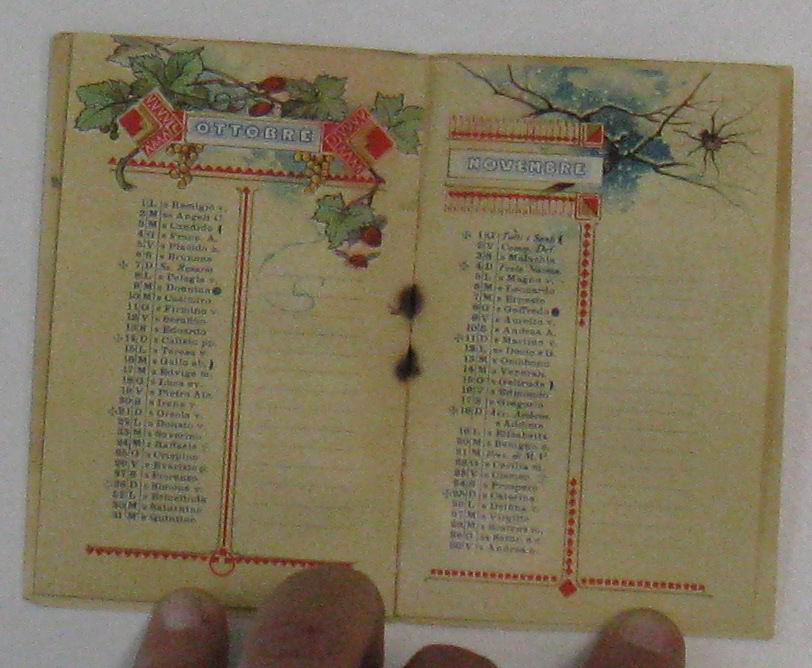 OTTOBRE
1 L s Remigio v.
2 M ss Angeli C.
3 M s Candido
4 G s Franc. A.
5 V s Placido
6 S s Brunone
7 D Ss. Rosario
8 L s Pelagia v.
9 M s Donnino
10 M s Casimiro
11 G s Firmino v.
12 V s Serafino
13 S s Edoardo
14 D s Calisto pp.
15 L s Teresa v.
16 M s Gallo ab.
17 M s Edvige m.
18 G s Luca ev.
19 V s Pietro Alc
20 S s Irene v
21 D s Orsola v.
22 L s Donato v.
23 M s Severino
24 M s Raffaele
25 G s Crispino
26 V s Evaristo p.
27 S s Fiorenzo
28 D s Simone
29 L s Ermelinda
30 M s Saturnino
31 M s Quintino
NOVEMBRE
1 G Tutti i Santi
2 V Comm. Def.
3 S s Malachia
4 D
5 L s Magno v.
6 M s Leonardo
7 M s Ernesto
8 G s Goffredo
9 V s Aurelio v.
10 S s Andrea A.
11 D s Martino v.
12 L s
13 M s Omobono
14 M s Veneran.
15 G s Geltrude
16 V s Edmondo
17 S s Gregorio
18 D
19 L s Elisabetta
20 M s Benigno
21 M Pres. di M. V.
22 G s Cecilia m.
23 V s Clemen
24 S s Prospero
25 D s Caterina
26 L s Delfina v.
27 M s Virgilio
28 M s
29 G s
30 V s Andrea